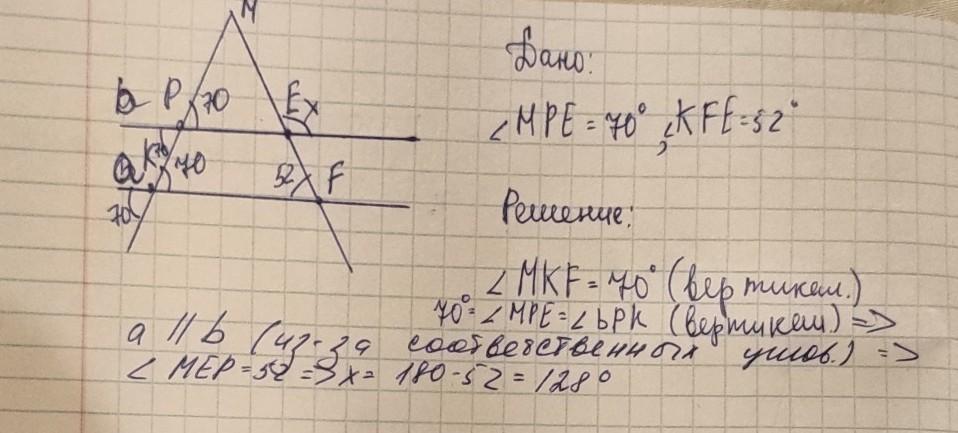 M
b P 70 E x
a K 70 70 52 F
70
Дано:
∠MPE = 70°, ∠KFE = 52°
Решение:
∠MKF = 70° (вертикал.)
70° = ∠MPE = ∠bPK (вертикал) =>
a || b (из-за соответственных углов.) =>
∠MEP = 52 => x = 180 - 52 = 128°